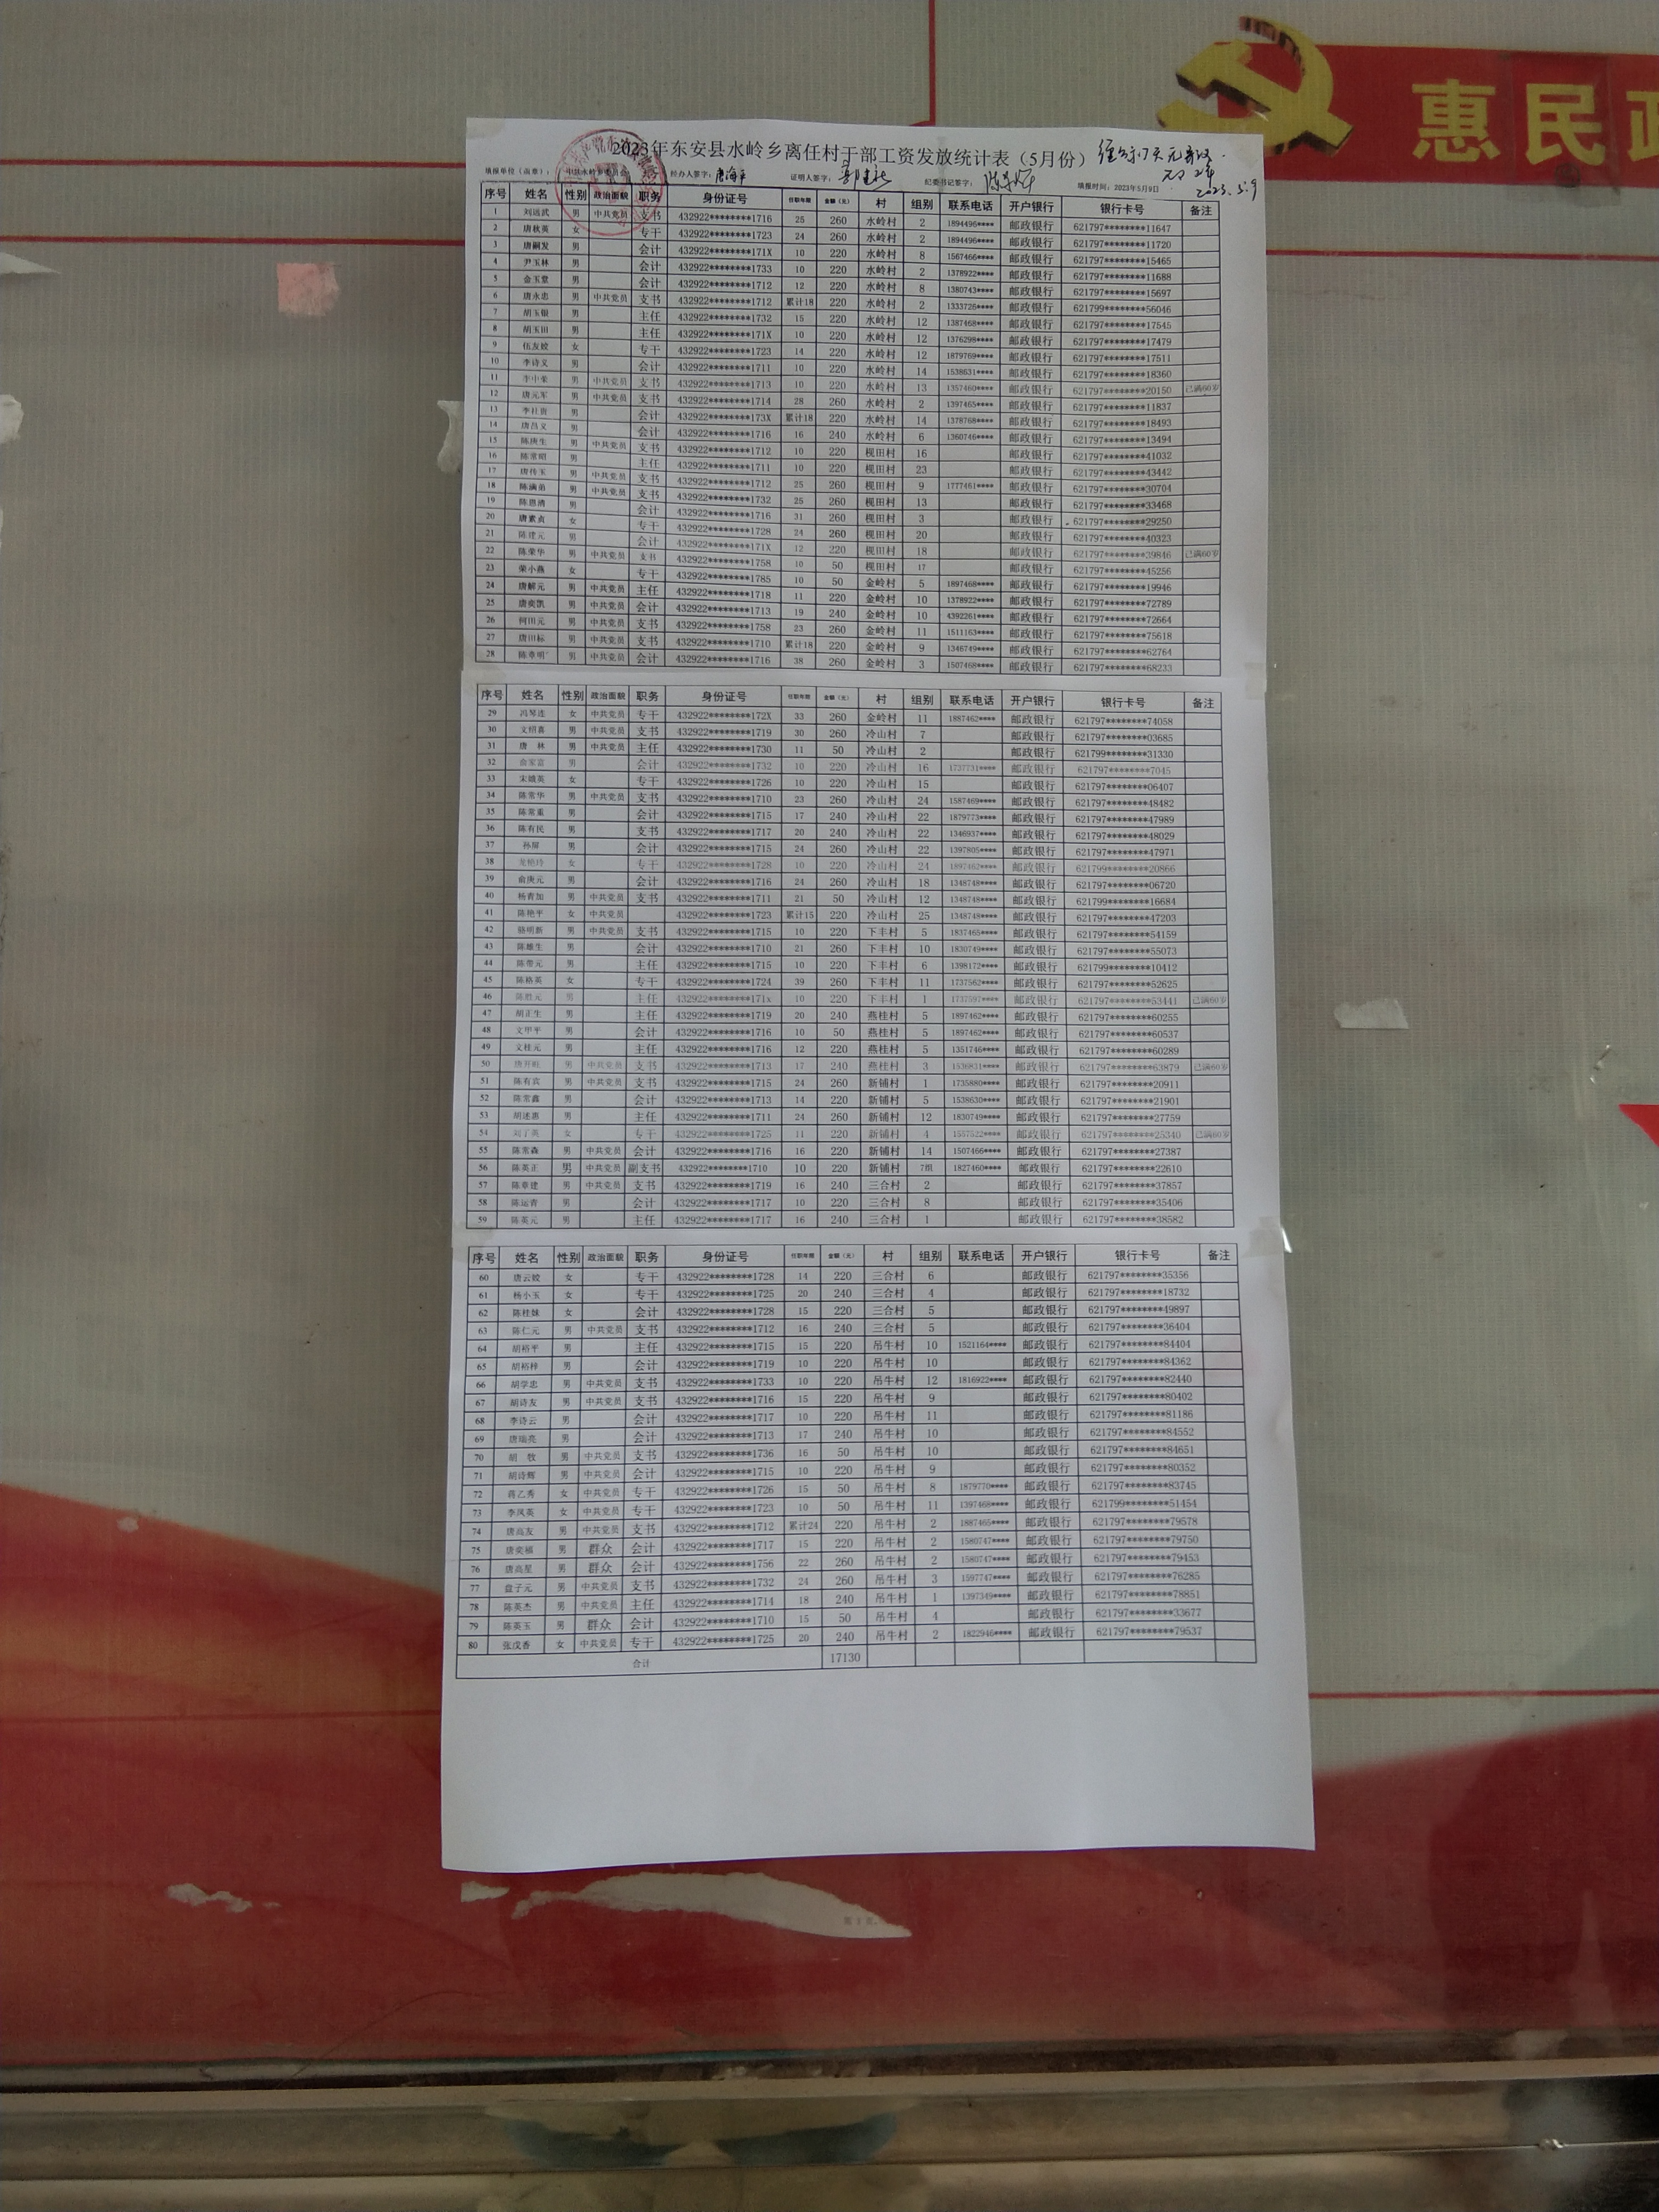 惠民政
2023年东安县水岭乡离任村干部工资发放统计表（5月份）
填报单位（盖章）：中共水岭乡委员会 经办人签字： 证明人签字： 纪委书记签字： 填报时间：2023年5月9日 2023.5.9
序号 姓名 性别 政治面貌 职务 身份证号 任职年限 金额（元） 村 组别 联系电话 开户银行 银行卡号 备注
1 刘远武 男 中共党员 支书 432922********1716 25 260 水岭村 2 1894496**** 邮政银行 621797********11647
2 唐秋英 女 专干 432922********1723 24 260 水岭村 2 1894496**** 邮政银行 621797********11720
3 唐嗣发 男 会计 432922********171X 10 220 水岭村 8 1567466**** 邮政银行 621797********15465
4 尹玉林 男 会计 432922********1733 10 220 水岭村 2 1378922**** 邮政银行 621797********11688
5 金玉堂 男 会计 432922********1712 12 220 水岭村 8 1380743**** 邮政银行 621797********15697
6 唐永忠 男 中共党员 支书 432922********1712 累计18 220 水岭村 2 1333726**** 邮政银行 621799********56046
7 胡玉银 男 主任 432922********1732 15 220 水岭村 12 1387468**** 邮政银行 621797********17545
8 胡玉田 男 主任 432922********171X 10 220 水岭村 12 1376298**** 邮政银行 621797********17479
9 伍友姣 女 专干 432922********1723 14 220 水岭村 12 1879769**** 邮政银行 621797********17511
10 李诗文 男 会计 432922********1711 10 220 水岭村 14 1538631**** 邮政银行 621797********18360
11 李中荣 男 中共党员 支书 432922********1713 10 220 水岭村 13 1357460**** 邮政银行 621797********20150 已满60岁
12 唐元军 男 中共党员 支书 432922********1714 28 260 水岭村 2 1397465**** 邮政银行 621797********11837
13 李日贵 男 会计 432922********173X 累计18 220 水岭村 14 1378768**** 邮政银行 621797********18493
14 唐昌文 男 会计 432922********1716 16 240 水岭村 6 1360746**** 邮政银行 621797********13494
15 陈庚生 男 中共党员 支书 432922********1712 10 220 枧田村 16 邮政银行 621797********41032
16 陈常昭 男 主任 432922********1711 10 220 枧田村 23 邮政银行 621797********43442
17 唐传玉 男 中共党员 支书 432922********1712 25 260 枧田村 9 1777461**** 邮政银行 621797********30704
18 陈满弟 男 中共党员 支书 432922********1732 25 260 枧田村 13 邮政银行 621797********33468
19 陈恩清 男 会计 432922********1716 31 260 枧田村 3 邮政银行 621797********29250
20 唐素贞 女 专干 432922********1728 24 260 枧田村 20 邮政银行 621797********40323
21 陈建元 男 会计 432922********171X 12 220 枧田村 18 邮政银行 621797********39846 已满60岁
22 陈荣华 男 中共党员 支书 432922********1758 10 50 枧田村 17 邮政银行 621797********45256
23 荣小燕 女 专干 432922********1785 10 50 金岭村 5 1897468**** 邮政银行 621797********19946
24 唐解元 男 中共党员 主任 432922********1718 11 220 金岭村 10 1378922**** 邮政银行 621797********72789
25 唐奕凯 男 中共党员 会计 432922********1713 19 240 金岭村 10 4392261**** 邮政银行 621797********72664
26 柯田元 男 中共党员 支书 432922********1758 23 260 金岭村 11 1511163**** 邮政银行 621797********75618
27 唐田标 男 中共党员 支书 432922********1710 累计18 220 金岭村 9 1346749**** 邮政银行 621797********62764
28 陈章明 男 中共党员 会计 432922********1716 38 260 金岭村 3 1507468**** 邮政银行 621797********68233
序号 姓名 性别 政治面貌 职务 身份证号 任职年限 金额（元） 村 组别 联系电话 开户银行 银行卡号 备注
29 冯琴连 女 中共党员 专干 432922********172X 33 260 金岭村 11 1887462**** 邮政银行 621797********74058
30 文绍喜 男 中共党员 支书 432922********1719 30 260 冷山村 7 邮政银行 621797********03685
31 唐 林 男 中共党员 主任 432922********1730 11 50 冷山村 2 邮政银行 621799********31330
32 俞家富 男 会计 432922********1732 10 220 冷山村 16 1737731**** 邮政银行 621797********7045
33 宋娥英 女 专干 432922********1726 10 220 冷山村 15 邮政银行 621797********06407
34 陈常华 男 中共党员 支书 432922********1710 23 260 冷山村 24 1587469**** 邮政银行 621797********48482
35 陈常重 男 会计 432922********1715 17 240 冷山村 22 1879773**** 邮政银行 621797********47989
36 陈有民 男 支书 432922********1717 20 240 冷山村 22 1346937**** 邮政银行 621797********48029
37 孙屏 男 会计 432922********1715 24 260 冷山村 22 1397805**** 邮政银行 621797********47971
38 龙艳玲 女 专干 432922********1728 10 220 冷山村 24 1897462**** 邮政银行 621799********20866
39 俞庚元 男 会计 432922********1716 24 260 冷山村 18 1348748**** 邮政银行 621797********06720
40 杨青加 男 中共党员 支书 432922********1711 21 50 冷山村 12 1348748**** 邮政银行 621799********16684
41 陈艳平 女 中共党员 432922********1723 累计15 220 冷山村 25 1348748**** 邮政银行 621797********47203
42 骆明新 男 中共党员 支书 432922********1715 10 220 下丰村 5 1837465**** 邮政银行 621797********54159
43 陈雄生 男 会计 432922********1710 21 260 下丰村 10 1830749**** 邮政银行 621797********55073
44 陈带元 男 主任 432922********1715 10 220 下丰村 6 1398172**** 邮政银行 621799********10412
45 陈格英 女 专干 432922********1724 39 260 下丰村 11 1737562**** 邮政银行 621797********52625
46 陈胜元 男 主任 432922********171x 10 220 下丰村 1 1737597**** 邮政银行 621797********53441 已满60岁
47 胡正生 男 主任 432922********1719 20 240 燕桂村 5 1897462**** 邮政银行 621797********60255
48 文甲平 男 会计 432922********1716 10 50 燕桂村 5 1897462**** 邮政银行 621797********60537
49 文桂元 男 主任 432922********1716 12 220 燕桂村 5 1351746**** 邮政银行 621797********60289
50 唐开旺 男 中共党员 支书 432922********1713 17 240 燕桂村 3 1536831**** 邮政银行 621797********63879 已满60岁
51 陈有宾 男 中共党员 支书 432922********1715 24 260 新铺村 1 1735880**** 邮政银行 621797********20911
52 陈常鑫 男 会计 432922********1713 14 220 新铺村 5 1538630**** 邮政银行 621797********21901
53 胡述惠 男 主任 432922********1711 24 260 新铺村 12 1830749**** 邮政银行 621797********27759
54 刘丁英 女 专干 432922********1725 11 220 新铺村 4 1557522**** 邮政银行 621797********25340 已满60岁
55 陈常森 男 中共党员 会计 432922********1716 16 220 新铺村 14 1507466**** 邮政银行 621797********27387
56 陈英正 男 中共党员 副支书 432922********1710 10 220 新铺村 7组 1827460**** 邮政银行 621797********22610
57 陈章建 男 中共党员 支书 432922********1719 16 240 三合村 2 邮政银行 621797********37857
58 陈运青 男 会计 432922********1717 10 220 三合村 8 邮政银行 621797********35406
59 陈英元 男 主任 432922********1717 16 240 三合村 1 邮政银行 621797********38582
序号 姓名 性别 政治面貌 职务 身份证号 任职年限 金额（元） 村 组别 联系电话 开户银行 银行卡号 备注
60 唐云姣 女 专干 432922********1728 14 220 三合村 6 邮政银行 621797********35356
61 杨小玉 女 专干 432922********1725 20 240 三合村 4 邮政银行 621797********18732
62 陈桂妹 女 会计 432922********1728 15 220 三合村 5 邮政银行 621797********49897
63 陈仁元 男 中共党员 支书 432922********1712 16 240 三合村 5 邮政银行 621797********36404
64 胡裕平 男 主任 432922********1715 15 220 吊牛村 10 1521164**** 邮政银行 621797********84404
65 胡裕梓 男 会计 432922********1719 10 220 吊牛村 10 邮政银行 621797********84362
66 胡学忠 男 中共党员 支书 432922********1733 10 220 吊牛村 12 1816922**** 邮政银行 621797********82440
67 胡诗友 男 中共党员 支书 432922********1716 15 220 吊牛村 9 邮政银行 621797********80402
68 李诗云 男 会计 432922********1717 10 220 吊牛村 11 邮政银行 621797********81186
69 唐瑞亮 男 会计 432922********1713 17 240 吊牛村 10 邮政银行 621797********84552
70 胡 牧 男 中共党员 支书 432922********1736 16 50 吊牛村 10 邮政银行 621797********84651
71 胡诗辉 男 中共党员 会计 432922********1715 10 220 吊牛村 9 邮政银行 621797********80352
72 蒋乙秀 女 中共党员 专干 432922********1726 15 50 吊牛村 8 1879770**** 邮政银行 621797********83745
73 李凤英 女 中共党员 专干 432922********1723 10 50 吊牛村 11 1397468**** 邮政银行 621799********51454
74 唐高友 男 中共党员 支书 432922********1712 累计24 220 吊牛村 2 1887465**** 邮政银行 621797********79578
75 唐奕福 男 群众 会计 432922********1717 15 220 吊牛村 2 1580747**** 邮政银行 621797********79750
76 唐高星 男 群众 会计 432922********1756 22 260 吊牛村 2 1580747**** 邮政银行 621797********79453
77 盘子元 男 中共党员 支书 432922********1732 24 260 吊牛村 3 1597747**** 邮政银行 621797********76285
78 陈英杰 男 中共党员 主任 432922********1714 18 240 吊牛村 1 1397349**** 邮政银行 621797********78851
79 陈英玉 男 群众 会计 432922********1710 15 50 吊牛村 4 邮政银行 621797********33677
80 张戊香 女 中共党员 专干 432922********1725 20 240 吊牛村 2 1822946**** 邮政银行 621797********79537
合计 17130